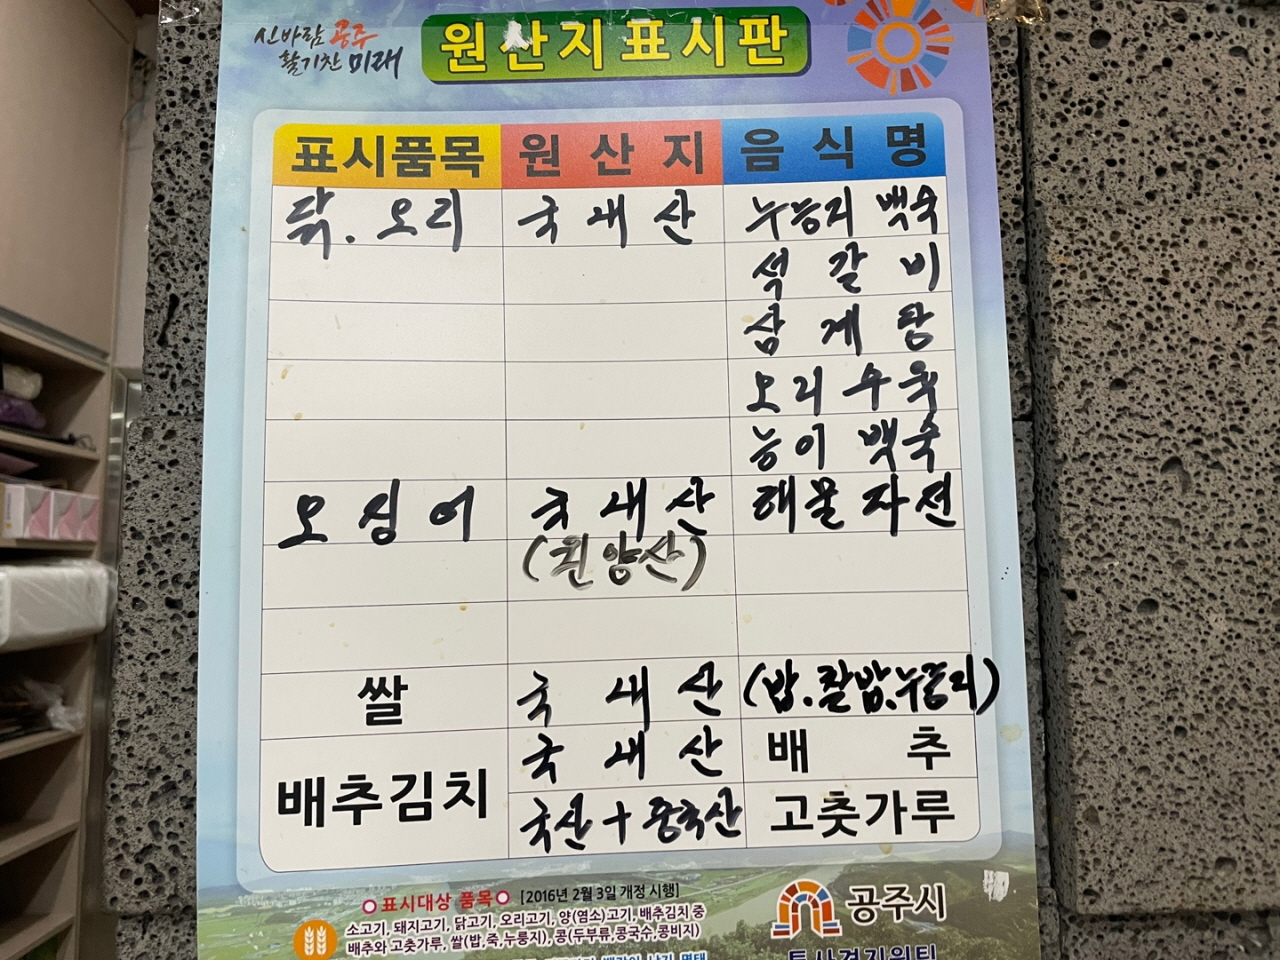 신바람 공주
활기찬 미래
원산지표시판
표시품목 원산지 음식명
닭.오리 국내산 누능지 백숙
석갈비
삼계탕
오리수육
능이 백숙
오징어 국내산 해물파전
(원양산)
쌀 국내산 (밥.찰밥.누룽지)
배추김치 국내산 배추
국산+중국산 고춧가루
표시대상 품목 [2016년 2월 3일 개정 시행]
소고기, 돼지고기, 닭고기, 오리고기, 양(염소)고기, 배추김치 중
배추와 고춧가루, 쌀(밥,죽,누룽지), 콩(두부류,콩국수,콩비지)
공주시